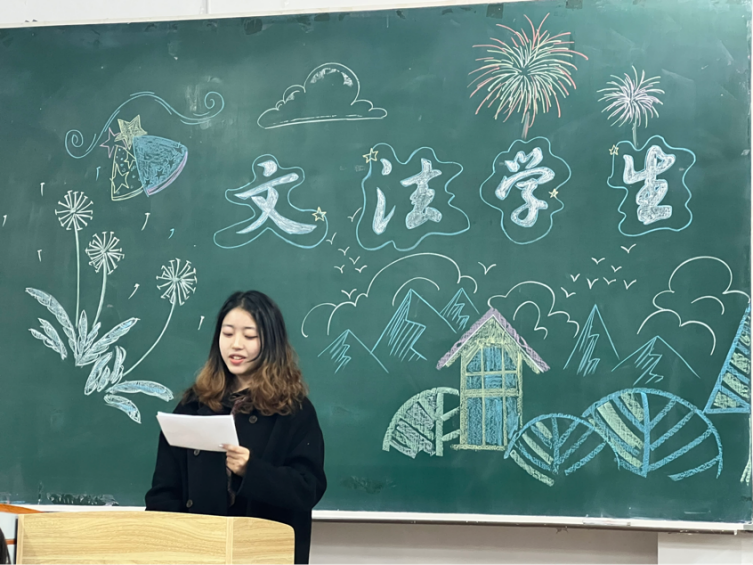 文法学生